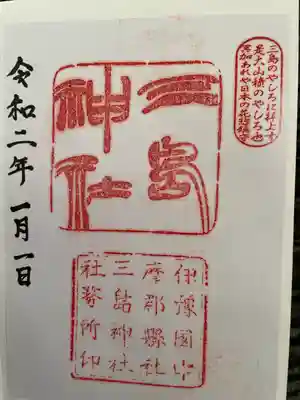 三島のやしろに拝上す
是大山積のやしろ也
あれや日本の花
三島
神社
伊豫國宇
摩郡縣社
三島神社
社務所印
令和二年 一月一日